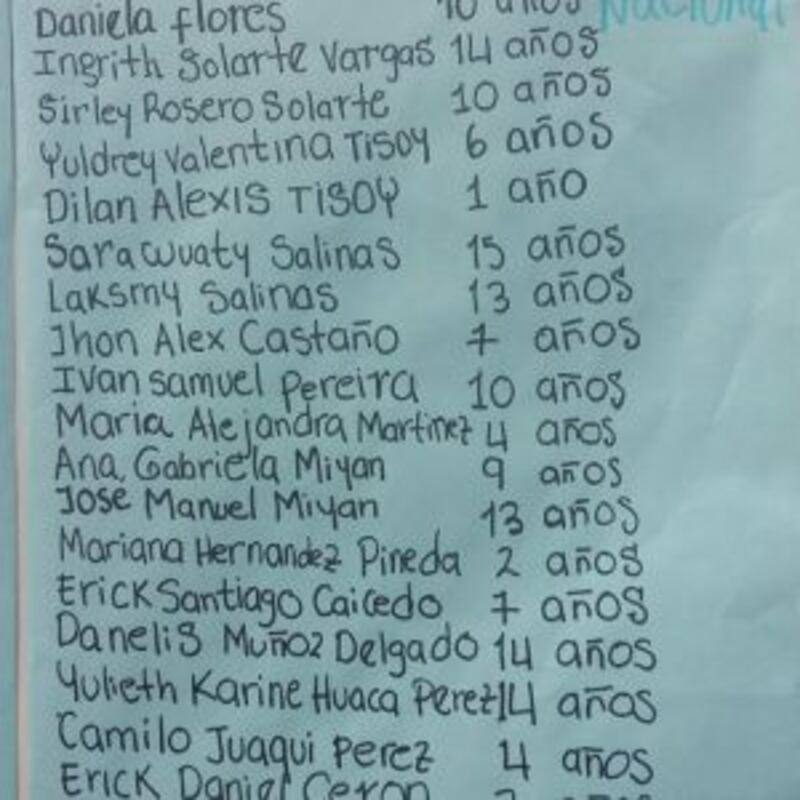 Daniela flores 10 años Nacional
Ingrith Solarte Vargas 14 años
Sirley Rosero Solarte 10 años
Yuldrey Valentina Tisoy 6 años
Dilan Alexis Tisoy 1 año
Sarawuaty Salinas 15 años
Laksmy Salinas 13 años
Jhon Alex Castaño 7 años
Ivan samuel pereira 10 años
Maria Alejandra Martinez 4 años
Ana Gabriela Miyan 9 años
Jose Manuel Miyan 13 años
Mariana Hernandez Pineda 2 años
Erick Santiago Caicedo 7 años
Danelis Muñoz Delgado 14 años
Yulieth Karine Huaca Perez 14 años
Camilo Juaqui perez 4 años
Erick Daniel Ceron años